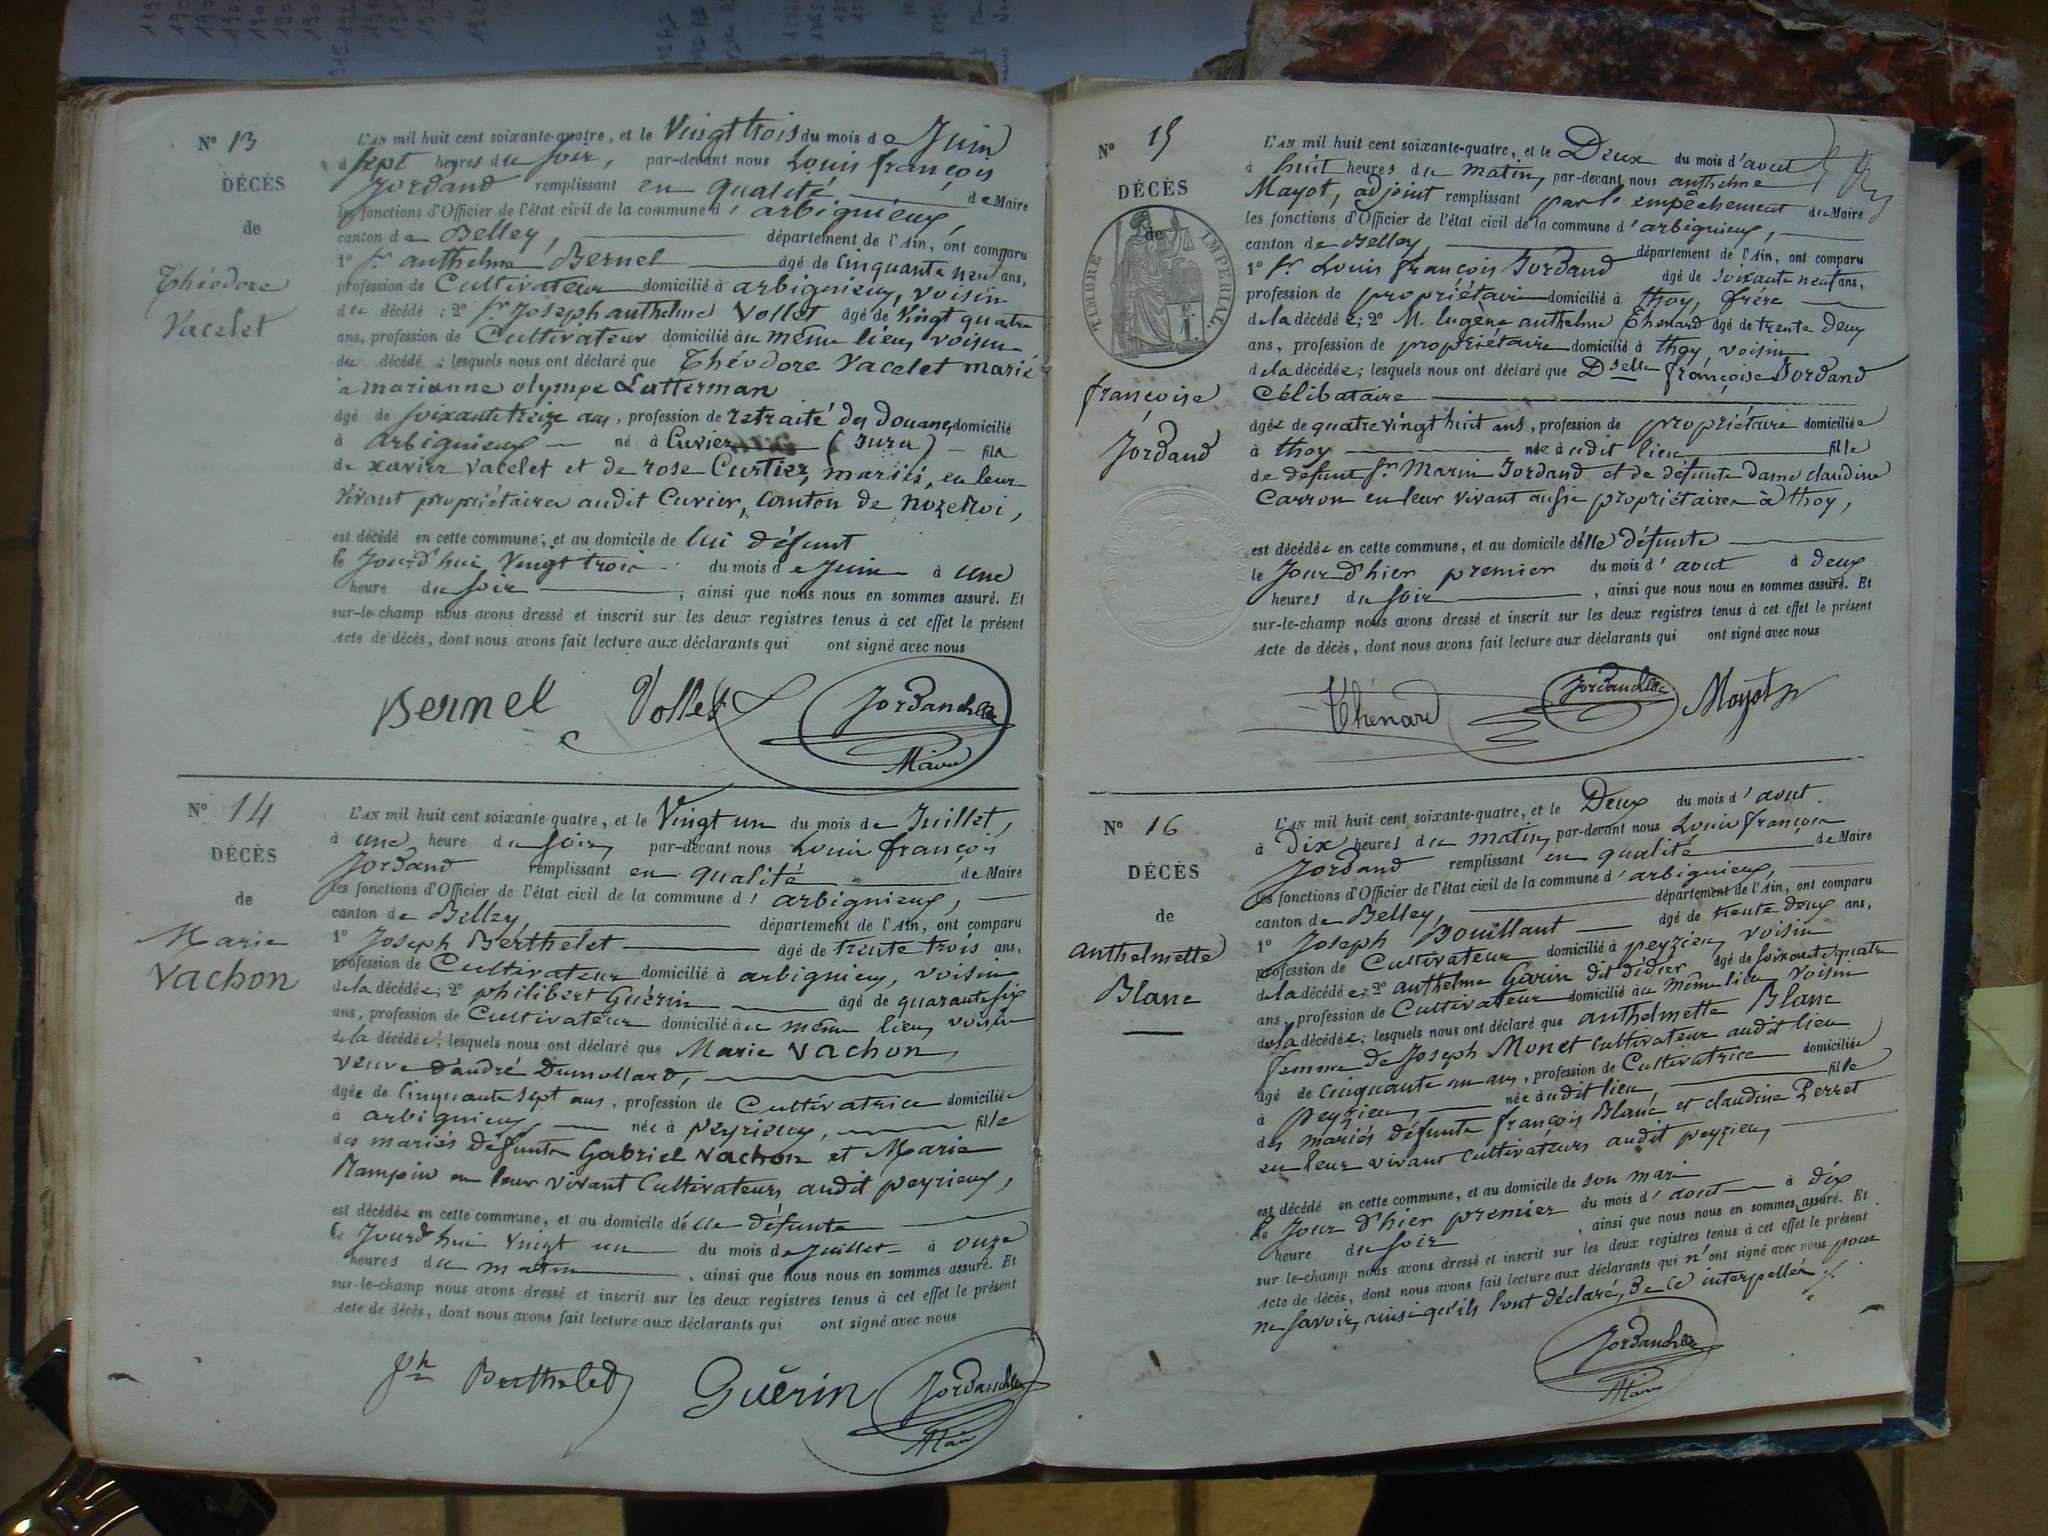 N° 13
DÉCÈS
de
Théodore
Vacelet
L'AN mil huit cent soixante-quatre, et le Vingt trois du mois de Juin
à sept heures du soir, par-devant nous Louis françois
Jordand remplissant en qualité de Maire
les fonctions d'Officier de l'état civil de la commune d'arbignieux,
canton de Belley, département de l'Ain, ont comparu
1° Sr anthelme Bernel âgé de cinquante neuf ans,
profession de Cultivateur domicilié à arbignieux, voisin
du décédé ; 2° Sr Joseph anthelme Vollet âgé de vingt quatre
ans, profession de Cultivateur domicilié au même lieu, voisin
du décédé ; lesquels nous ont déclaré que Théodore Vacelet marié
à marianne olympe Lutterman
âgé de soixante treize ans, profession de retraité des Douanes, domicilié
à arbignieux né à Cuvier (Jura) fils
de xavier vacelet et de rose Curtier, mariés, en leur
vivant propriétaires audit Cuvier, Comton de nozeroi,
est décédé en cette commune, et au domicile de lui défunt
le Jourd'hui Vingt trois du mois de Juin à une
heure du soir, ainsi que nous nous en sommes assuré. Et
sur-le-champ nous avons dressé et inscrit sur les deux registres tenus à cet effet le présent
Acte de décès, dont nous avons fait lecture aux déclarants qui ont signé avec nous
Bernel Vollet Jordand
Maire
N° 14
DÉCÈS
de
Marie
Vachon
L'AN mil huit cent soixante-quatre, et le Vingt un du mois de Juillet,
à une heure du soir, par-devant nous Louis françois
Jordand remplissant en qualité de Maire
les fonctions d'Officier de l'état civil de la commune d'arbignieux,
canton de Belley, département de l'Ain, ont comparu
1° Joseph Berthelet âgé de trente trois ans,
profession de Cultivateur domicilié à arbignieux, voisin
de la décédée; 2° philibert Guérin âgé de quarante six
ans, profession de Cultivateur domicilié au même lieu, voisin
de la décédée; lesquels nous ont déclaré que Marie Vachon,
veuve d'andré Dumollard,
âgée de Cinquante sept ans, profession de Cultivatrice domiciliée
à arbignieux, née à peyrieux, fille
des mariés défunts Gabriel Vachon et Marie
en leur vivant Cultivateurs audit peyrieux,
est décédée en cette commune, et au domicile d'elle défunte
le Jourd'hui vingt un du mois de Juillet à onze
heures du matin, ainsi que nous nous en sommes assuré. Et
sur-le-champ nous avons dressé et inscrit sur les deux registres tenus à cet effet le présent
Acte de décès, dont nous avons fait lecture aux déclarants qui ont signé avec nous
Jh Berthelet Guérin Jordand
Maire
N° 15
DÉCÈS
de
TIMBRE IMPÉRIAL
françoise
Jordand
L'AN mil huit cent soixante-quatre, et le Deux du mois d'aout
à huit heures du matin, par-devant nous anthelme
Mayot, adjoint remplissant par l'empêchement du Maire
les fonctions d'Officier de l'état civil de la commune d'arbignieux,
canton de Belley, département de l'Ain, ont comparu
1° Sr Louis françois Jordand âgé de soixante neuf ans,
profession de propriétaire domicilié à thoy, frère
de la décédée; 2° M. Eugène anthelme Thenard âgé de trente deux
ans, profession de propriétaire domicilié à thoy, voisin
de la décédée; lesquels nous ont déclaré que Dselle françoise Jordand
Célibataire
âgée de quatre vingt huit ans, profession de propriétaire domiciliée
à thoy née audit lieu fille
de défunt Sr Marin Jordand et de défunte dame claudine
Carron en leur vivant aussi propriétaires à thoy,
est décédée en cette commune, et au domicile d'elle défunte
le Jour d'hier premier du mois d'aout à deux
heures du soir, ainsi que nous nous en sommes assuré. Et
sur-le-champ nous avons dressé et inscrit sur les deux registres tenus à cet effet le présent
Acte de décès, dont nous avons fait lecture aux déclarants qui ont signé avec nous
Thénard Jordand Mayot
N° 16
DÉCÈS
de
anthelmette
Blanc
L'AN mil huit cent soixante-quatre, et le Deux du mois d'aout
à Dix heures du matin, par-devant nous Louis françois
Jordand remplissant en qualité de Maire
les fonctions d'Officier de l'état civil de la commune d'arbignieux,
canton de Belley, département de l'Ain, ont comparu
1° Joseph Bouillant âgé de trente deux ans,
profession de Cultivateur domicilié à peyzieu, voisin
de la décédée; 2° anthelme Garin dit didier âgé de soixante quatre
ans, profession de Cultivateur domicilié au même lieu, voisin
de la décédée; lesquels nous ont déclaré que anthelmette Blanc
femme de Joseph Monet cultivateur audit lieu
âgé de cinquante un ans, profession de Cultivatrice domiciliée
à peyzieu, née audit lieu, fille
des mariés défunts françois Blanc et claudine Perret
en leur vivant cultivateurs audit peyzieu,
est décédé en cette commune, et au domicile de son mari
le Jour d'hier premier du mois d'aout à dix
heure du soir, ainsi que nous nous en sommes assuré. Et
sur le-champ nous avons dressé et inscrit sur les deux registres tenus à cet effet le présent
Acte de décès, dont nous avons fait lecture aux déclarants qui n'ont signé avec nous pour
ne savoir, ainsi qu'ils l'ont déclaré, de ce interpellés
Jordand
Maire